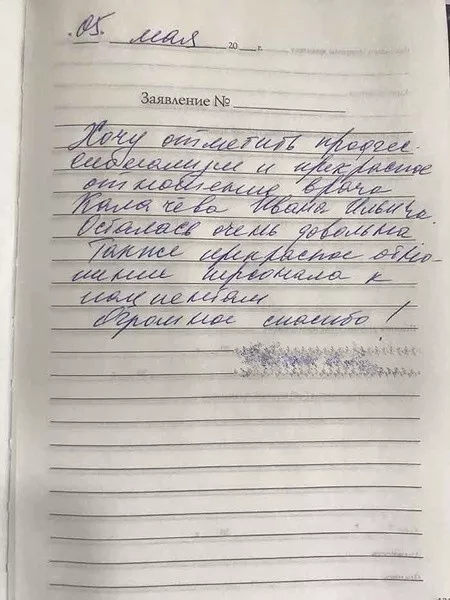 05. мая 20 г.
Заявление №
Хочу отметить профес-
сионализм и прекрасное
отношение врача
Калачёва Ивана Ильича.
Осталась очень довольна
Также прекрасное отно-
шение персонала к
пациентам
Огромное спасибо!